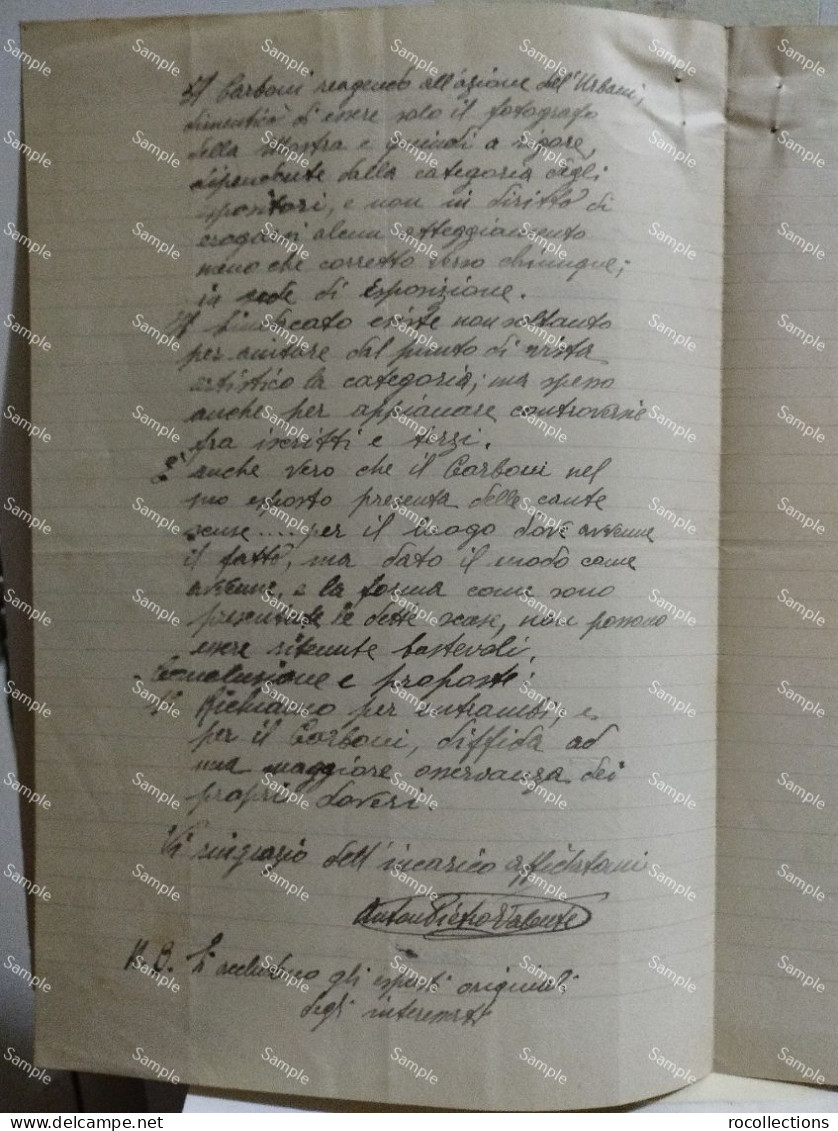 Il Carboni reagendo all'azione dell'Urbani,
dimenticò di essere solo il fotografo
della Mostra e quindi a rigore,
dipendente dalla categoria degli
espositori, e non in diritto di
erogarsi alcun atteggiamento
meno che corretto verso chiunque;
in sede di Esposizione.
Il Sindacato esiste non soltanto
per aiutare dal punto di vista
artistico la categoria; ma spesso
anche per appianare controversie
fra iscritti e terzi.
E' anche vero che il Carboni nel
suo esposto presenta delle caute
scuse.... per il luogo dove avvenne
il fatto, ma dato il modo come
avvenne, e la forma come sono
presentate le dette scuse, non possono
essere ritenute bastevoli.
Conclusione e proposte:
Richiamo per entrambi, e
per il Carboni, diffida ad
una maggiore osservanza dei
propri doveri.
Vi ringrazio dell'incarico affidatomi
Anton Pietro Valente
N.B. Si accludono gli esposti originali
degli interessati
rocollections